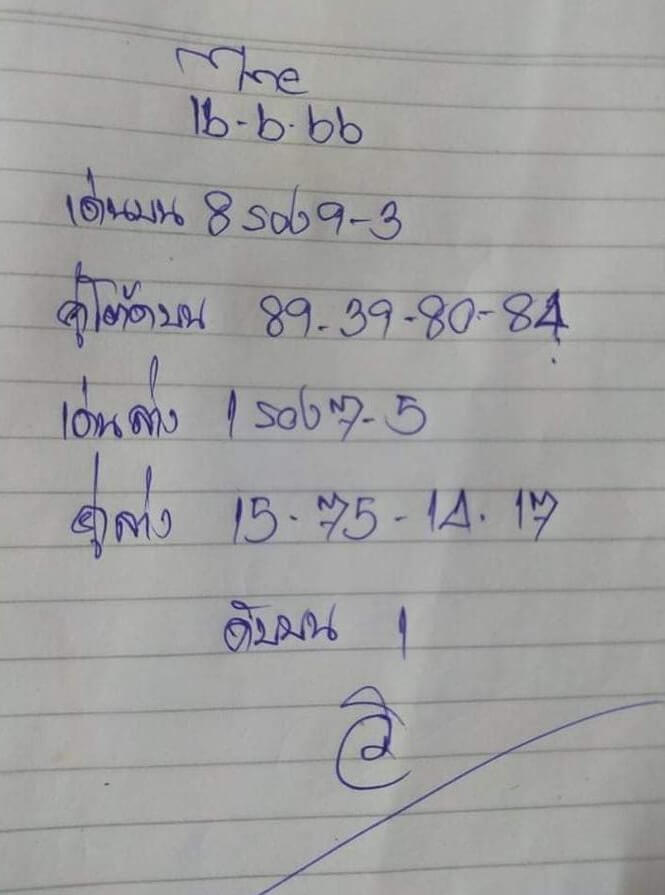 ไทย
16-6-66
เด่นบน 8 รอง 9-3
คู่โต๊ดบน 89-39-80-84
เด่นล่าง 1 รอง 7-5
คู่ล่าง 15-75-14-17
ดับบน 1